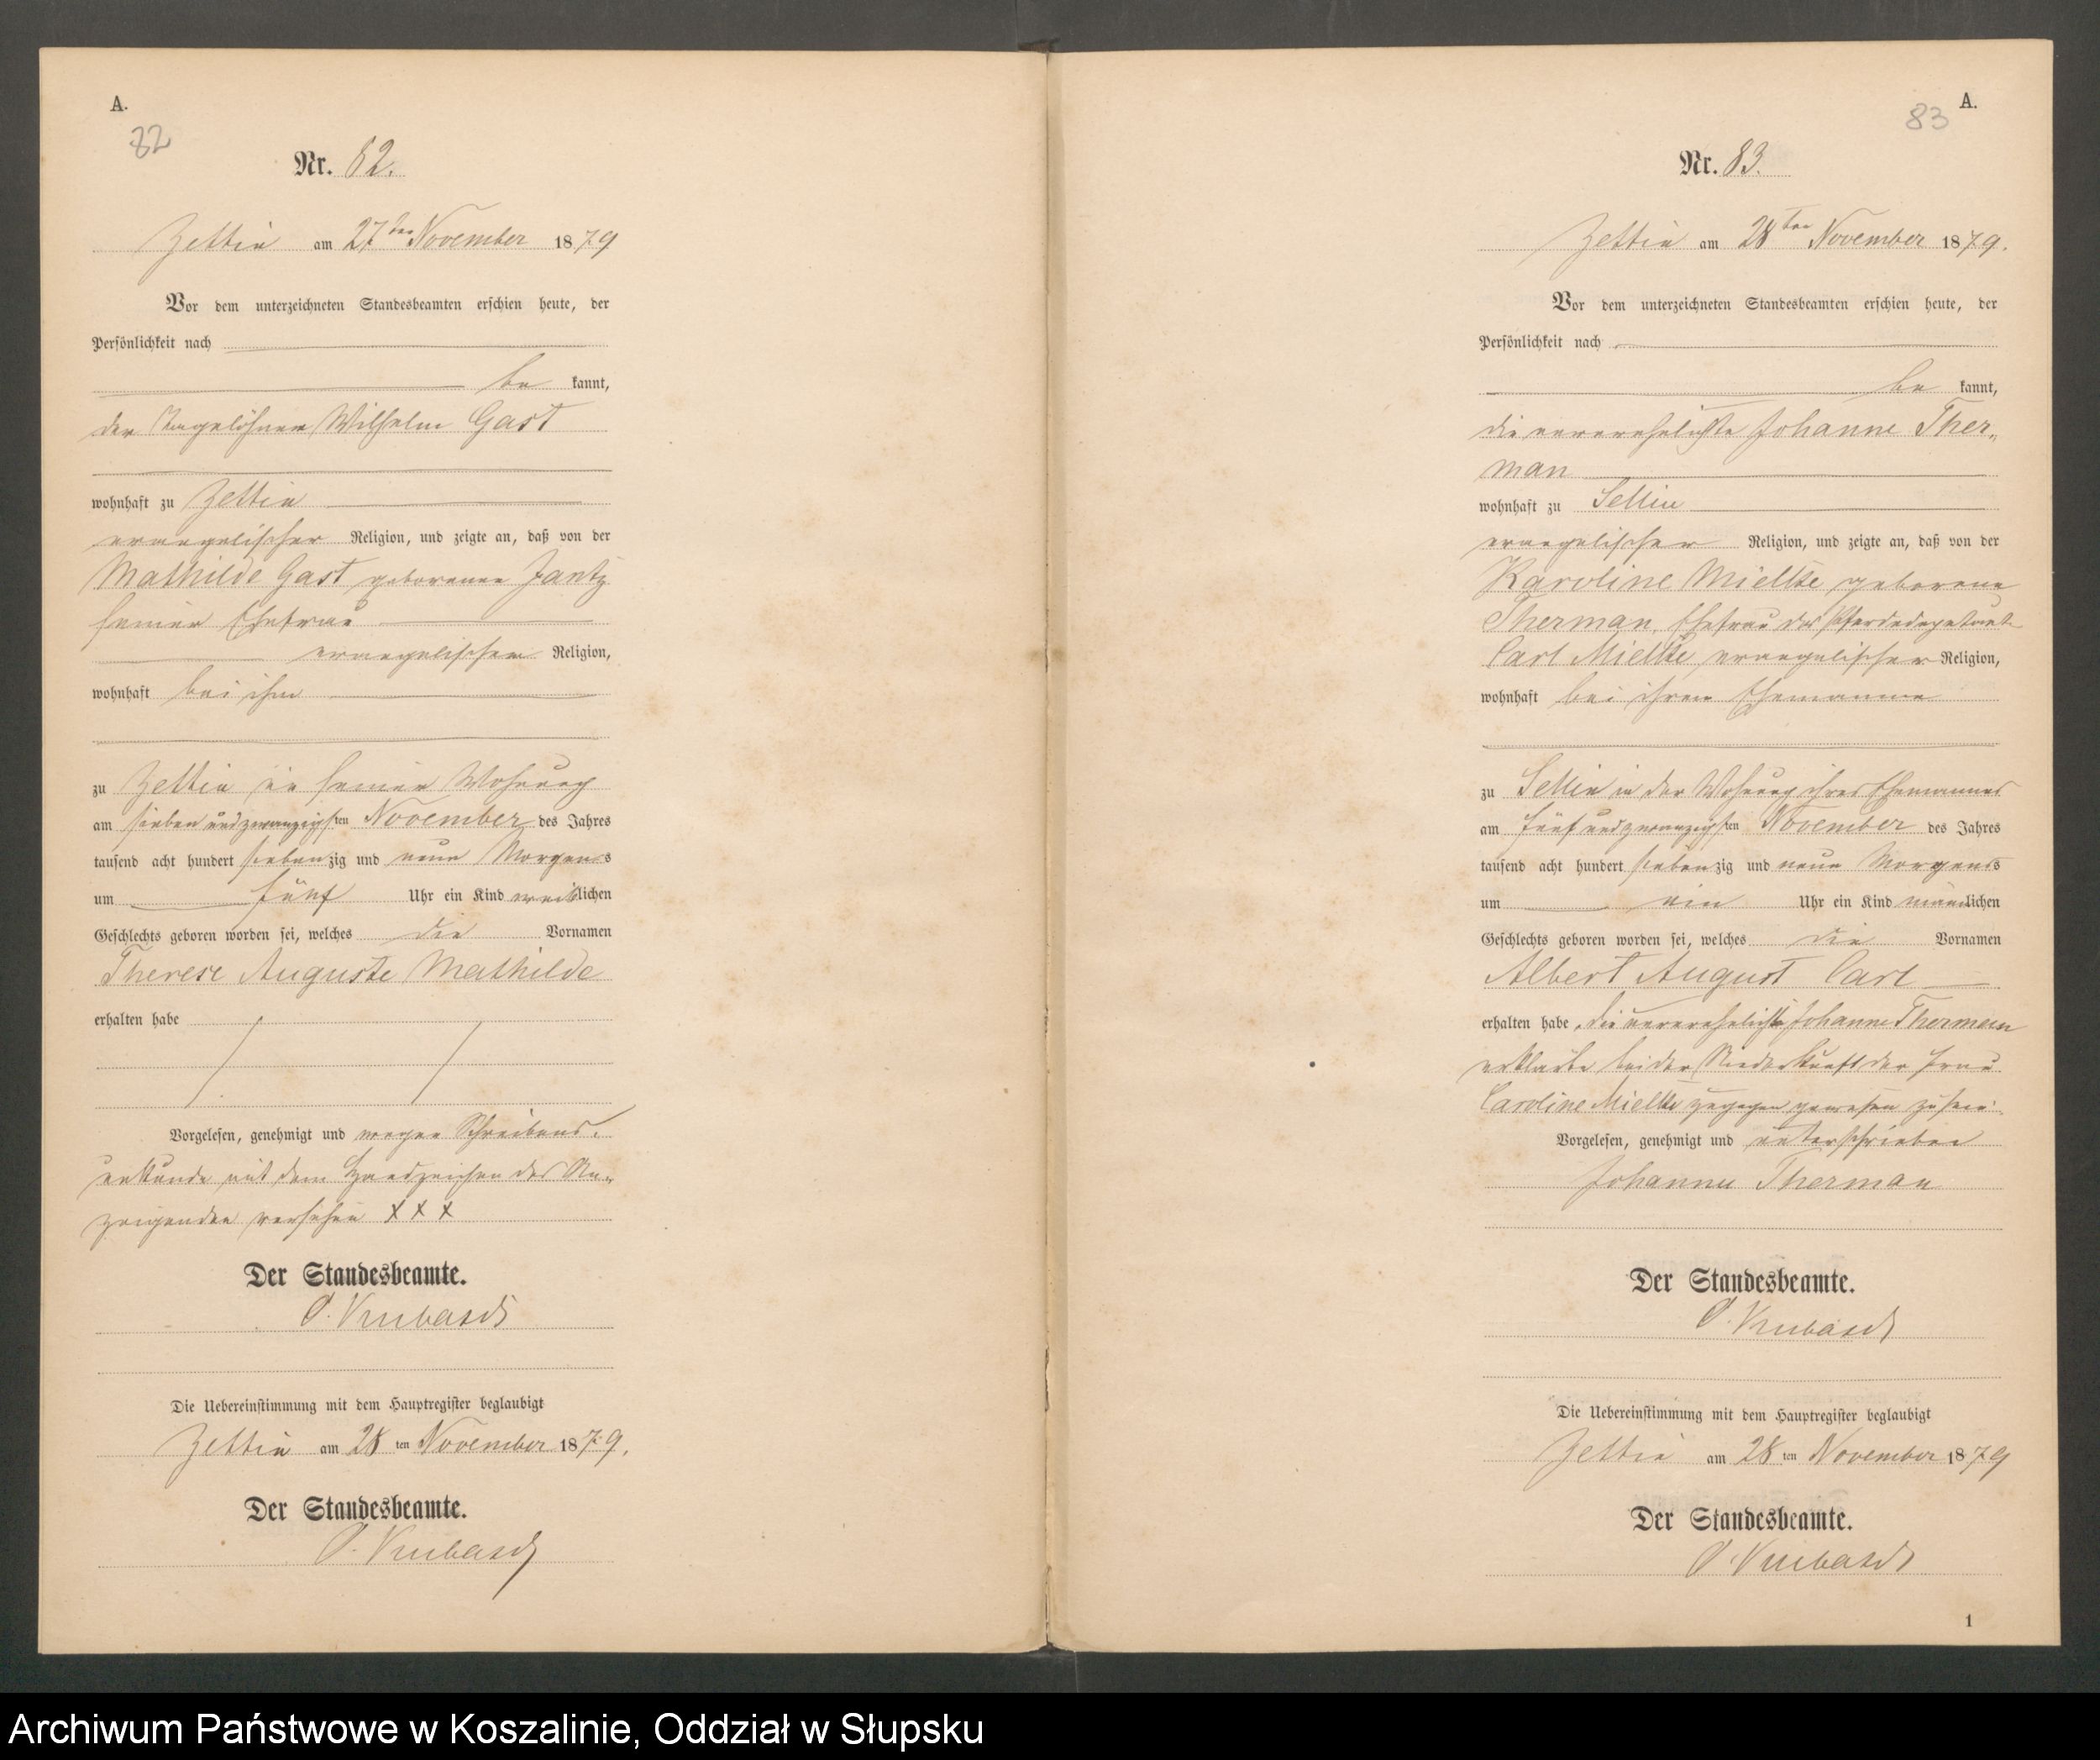 A.
82
Nr. 82.
Zettin am 27ten November 1879
Vor dem unterzeichneten Standesbeamten erschien heute, der
Persönlichkeit nach
be kannt,
der Tagelöhner Wilhelm Gast
wohnhaft zu Zettin
evangelischer Religion, und zeigte an, daß von der
Mathilde Gast geborenen Jantz
seiner Ehefrau
evangelischer Religion,
wohnhaft bei ihm
zu Zettin in seiner Wohnung
am sieben und zwanzigsten November des Jahres
tausend acht hundert siebenzig und neun Morgens
um fünf Uhr ein Kind weiblichen
Geschlechts geboren worden sei, welches die Vornamen
Therese Auguste Mathilde
erhalten habe
Vorgelesen, genehmigt und wegen Schreibens-
unkunde mit dem Handzeichen des An-
zeigenden versehen XXX
Der Standesbeamte.
Die Uebereinstimmung mit dem Hauptregister beglaubigt
Zettin am 28ten November 1879.
Der Standesbeamte.
A.
83
Nr. 83.
Zettin am 28ten November 1879.
Vor dem unterzeichneten Standesbeamten erschien heute, der
Persönlichkeit nach
be kannt,
die unverehelichte Johanne Ther-
man
wohnhaft zu Sellin
evangelischer Religion, und zeigte an, daß von der
Karoline Mielke geborene
Therman, Ehefrau des
Carl Mielke, evangelischer Religion,
wohnhaft bei ihrem Ehemanne
zu Sellin in der Wohnung ihres Ehemannes
am fünf und zwanzigsten November des Jahres
tausend acht hundert siebenzig und neun Morgens
um ein Uhr ein Kind männlichen
Geschlechts geboren worden sei, welches die Vornamen
Albert August Carl
erhalten habe, die unverehelichte Johanne Therman
erklärte bei der Niederkunft der Frau
Caroline Mielke zugegen gewesen zu sein.
Vorgelesen, genehmigt und unterschrieben
Johanne Therman
Der Standesbeamte.
Die Uebereinstimmung mit dem Hauptregister beglaubigt
Zettin am 28ten November 1879
Der Standesbeamte.
1
Archiwum Państwowe w Koszalinie, Oddział w Słupsku